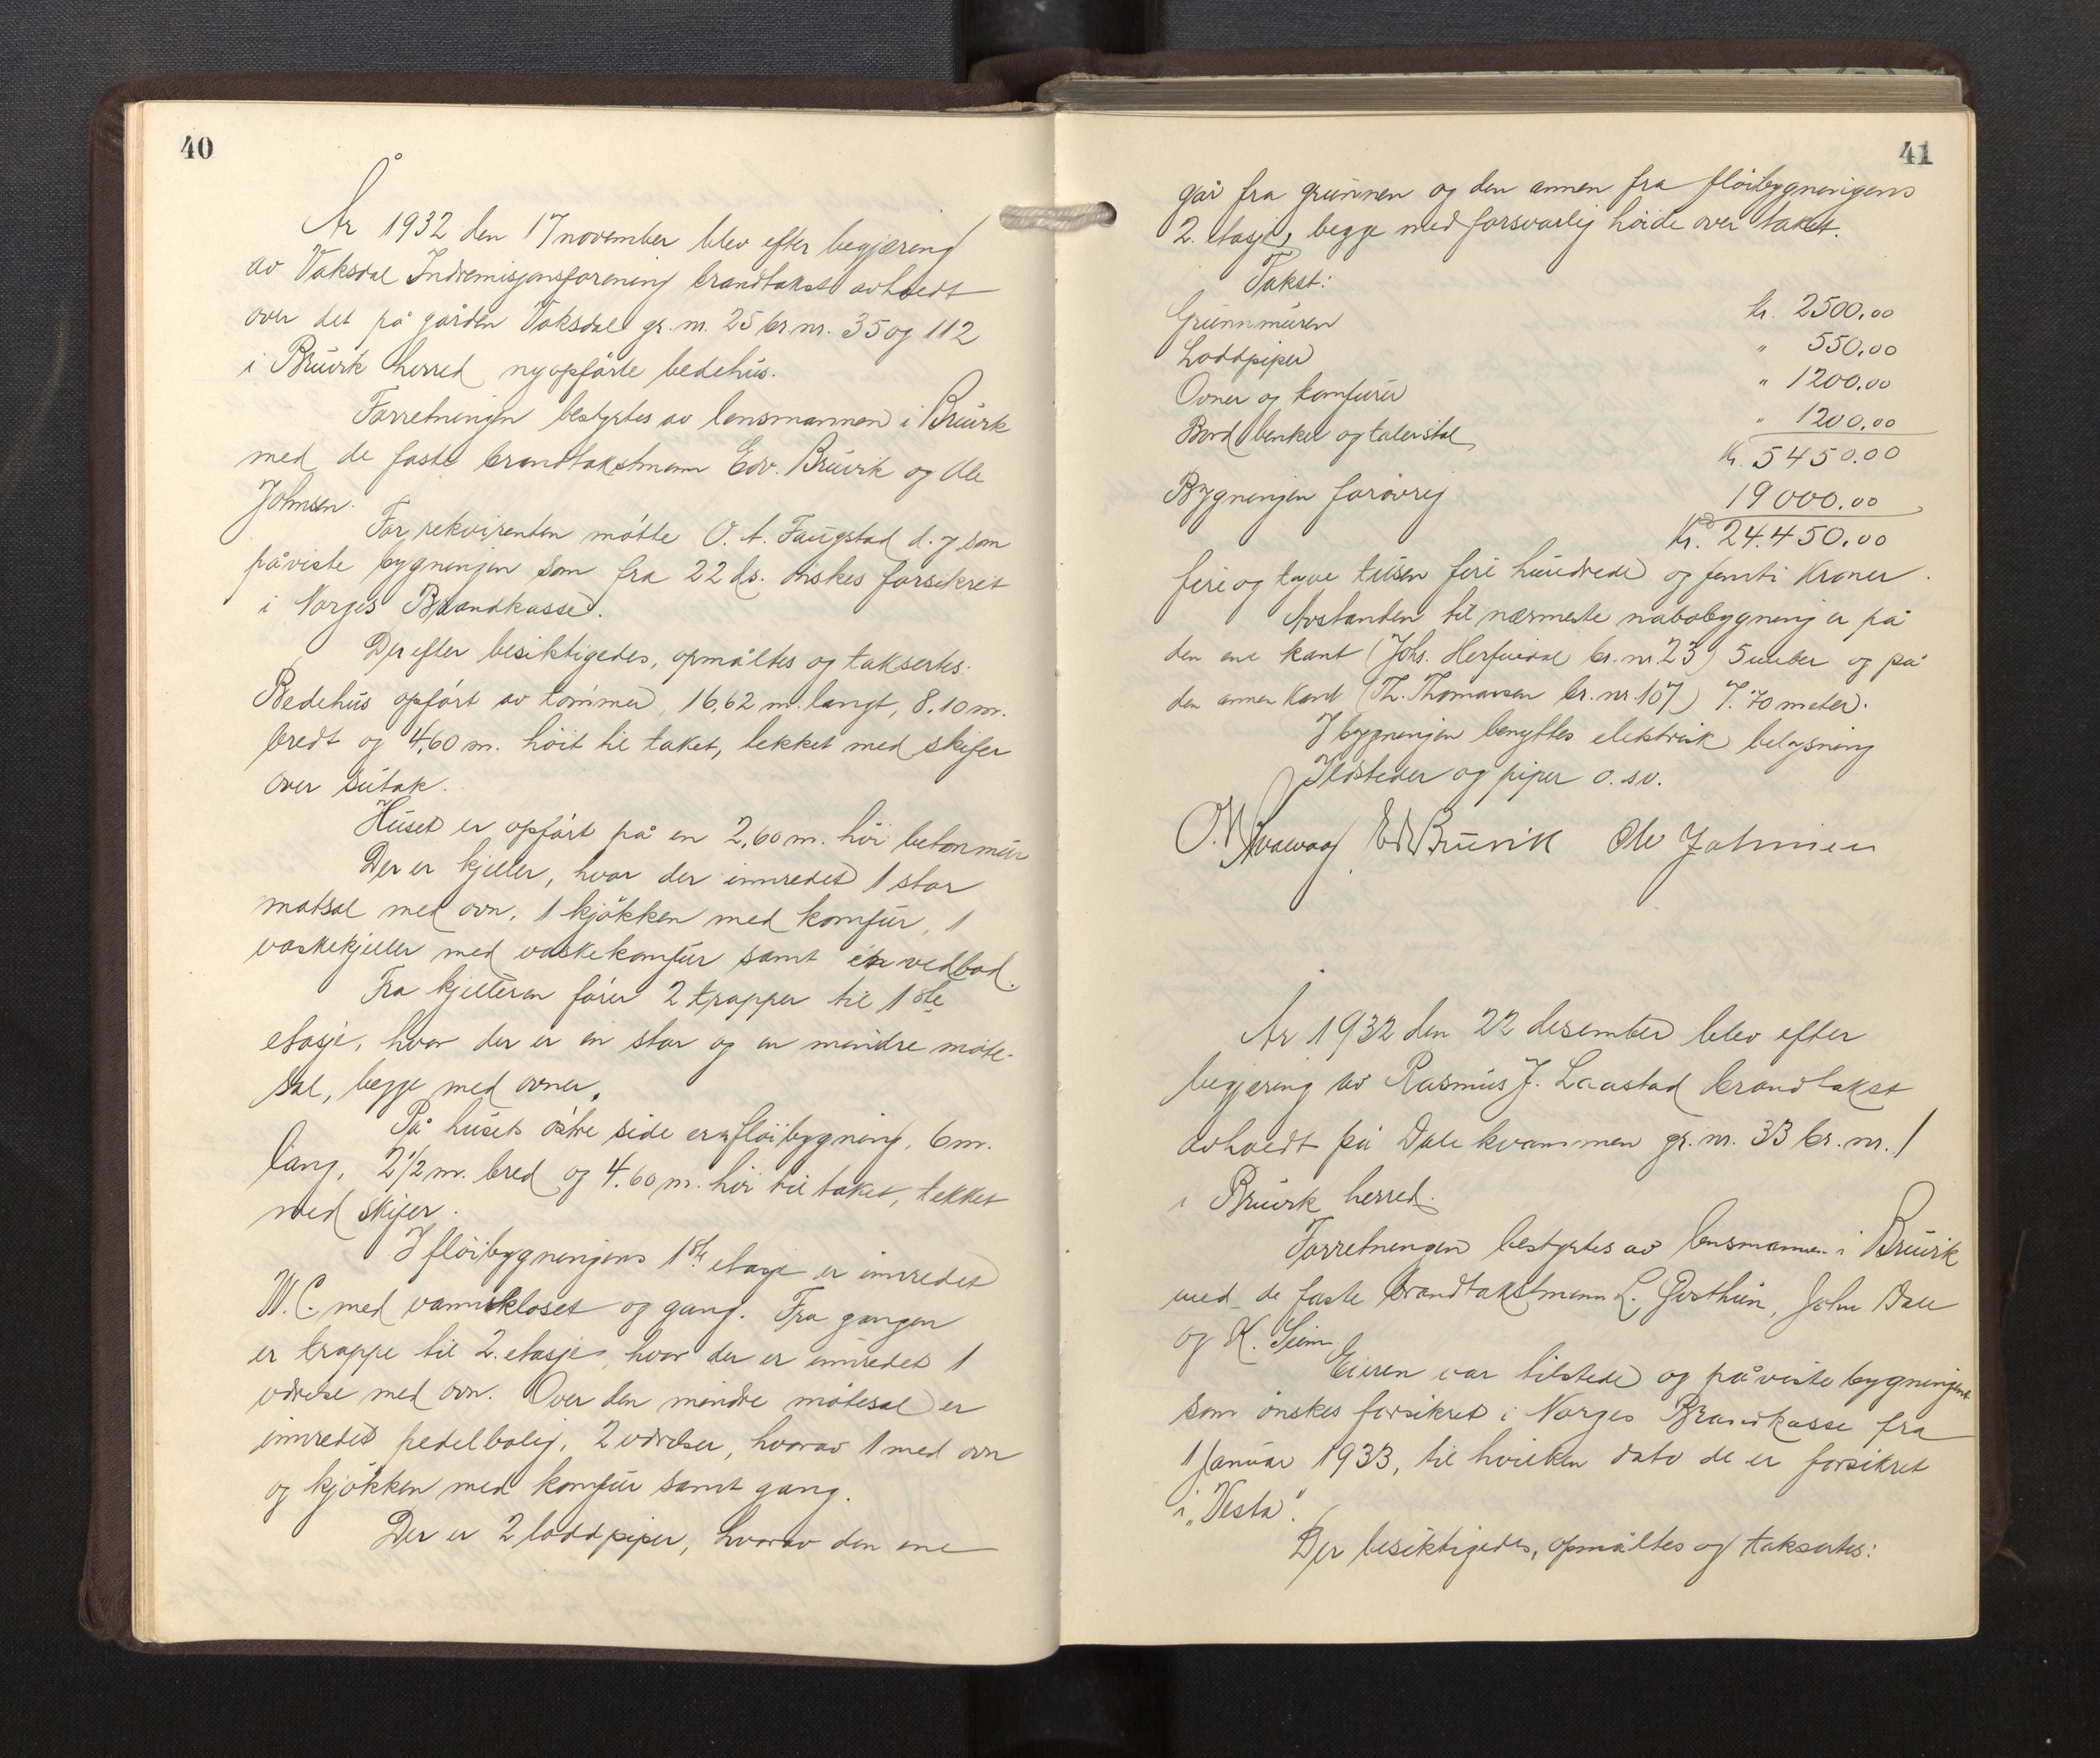 40
År 1932 den 17 november blev efter begjæring
av Vaksdal Indremisjonsforening brandtakst avholdt
over det på gården Vaksdal gr. nr. 25 br. nr. 35 og 112
i Bruvik herred nyopførte bedehus.
Forretningen bestyrtes av lensmannen i Bruvik
med de faste brandtakstmenn Edv. Bruvik og Ole
Johnsen.
For rekvirenten møtte O. A. Faugstad d. y. som
påviste bygningen som fra 22 ds. ønskes forsikret
i Norges Brandkasse.
Derefter besiktigedes, opmåltes og taksertes:
Bedehus opført av tømmer, 16,62 m. langt, 8,10 m.
bredt og 4,60 m. høit til taket, tekket med skifer
over sutak.
Huset er opført på en 2,60 m. høi betonmur
Der er kjeller, hvor der innredet 1 stor
matsal med ovn, 1 kjøkken med komfur, 1
vaskekjeller med vaskekomfur samt en vedbod.
Fra kjelleren fører 2 trapper til 1ste
etasje, hvor der er en stor og en mindre møte-
sal, begge med ovner.
På husets østre side er en fløibygning, 6 m.
lang, 2 1/2 m. bred og 4.60 m. høi til taket, tekket
med skifer.
I fløibygningens 1ste etasje er innredet
W. C. med vannkloset og gang. Fra gangen
er trappe til 2. etasje, hvor der er innredet 1
værelse med ovn. Over den mindre møtesal er
innredet pedelbolig, 2 værelser, hvorav 1 med ovn
og kjøkken med komfur samt gang.
Der er 2 loddpiper, hvorav den ene
41
går fra grunnen og den annen fra fløibygningens
2. etasje, begge med forsvarlig høide over taket.
Takst:
Grunnmuren kr. 2500.00
Loddpiper " 550.00
Ovner og komfurer " 1200.00
Bord benker og talerstol " 1200.00
Kr. 5450.00
Bygningen forøvrig 19000.00
Kr. 24.450.00
fire og tyve tusen fire hundrede og femti Kroner.
Avstanden til nærmeste nabobygning er på
den ene kant (Johs. Herfindal br. nr 23) 5 meter og på
den annen kant (Th. Thomassen br. nr. 107) 7.70 meter.
I bygningen benyttes elektrisk belysning
Ildsteder og piper o. sv.
Ed Bruvik Ole Johnsen
År 1932 den 22 desember blev efter
begjæring av Rasmus J. Laastad brandtakst
avholdt på Dalekvammen gr. nr. 33 br. nr. 1
i Bruvik herred.
Forretningen bestyrtes av lensmannen i Bruvik
med de faste brandtakstmenn L. Gosthun, John Dale
og K. Seim
Eieren var tilstede og påviste bygningene
som ønskes forsikret i Norges Brandkasse fra
1 januar 1933, til hvilken dato de er forsikret
i „Vesta".
Der besiktigedes, opmåltes og taksertes: